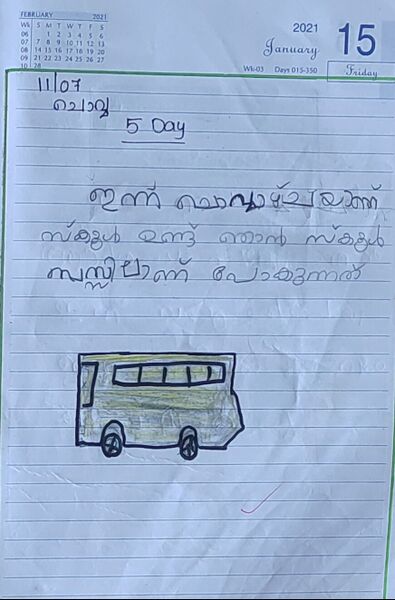 FEBRUARY 2021
Wk S M T W T F S
06 1 2 3 4 5 6
07 7 8 9 10 11 12 13
08 14 15 16 17 18 19 20
09 21 22 23 24 25 26 27
10 28
2021
January 15
Wk-03 Days 015-350 Friday
11/07
ചൊവ്വ
5 Day
ഇന്ന് ചൊവ്വാഴ്ചയാണ്
സ്കൂൾ ഉണ്ട് ഞാൻ സ്കൂൾ
ബസ്സിലാണ് പോകുന്നത്